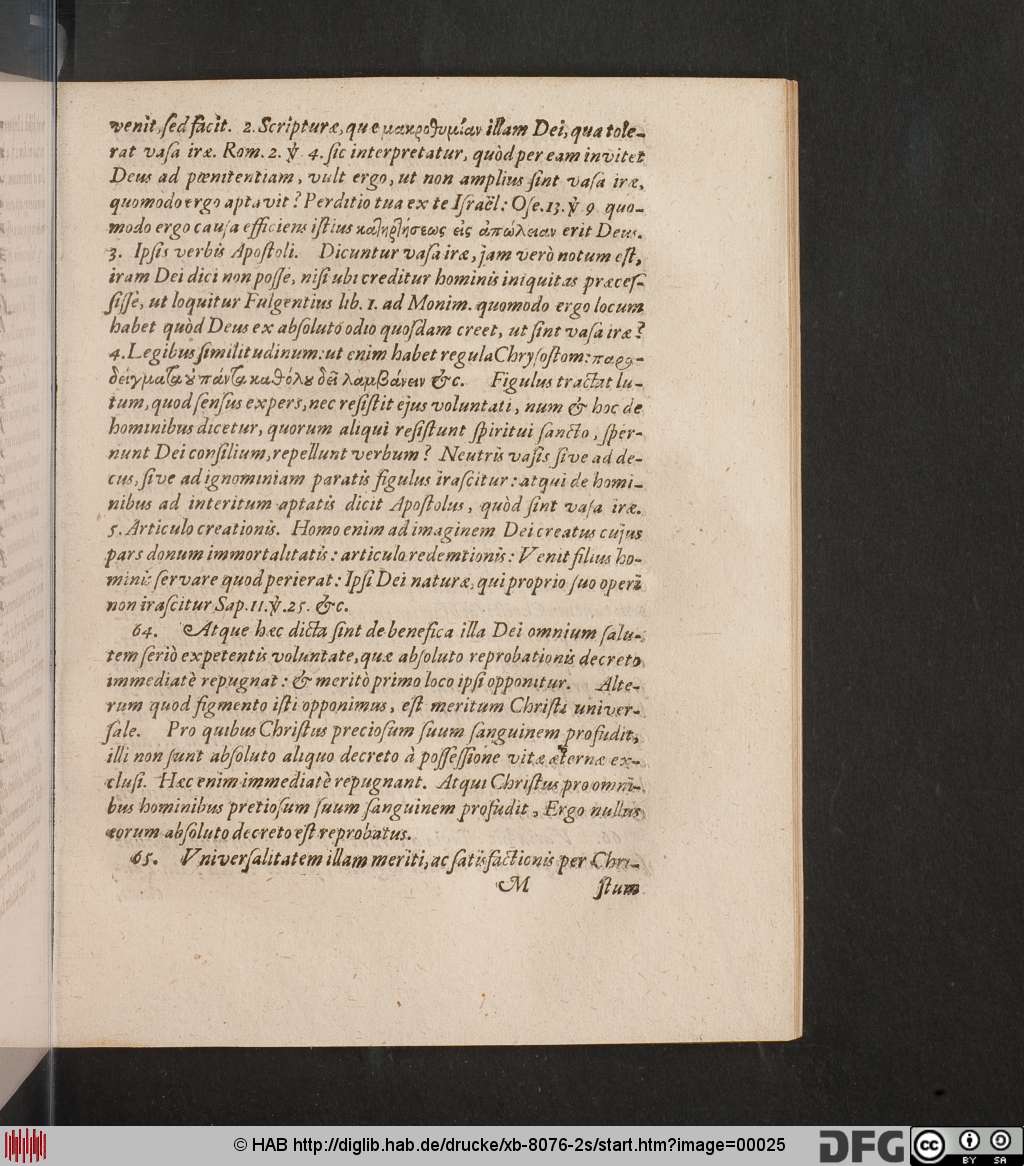 venit, sed facit. 2. Scripturæ, quæ μακροθυμίαν illam Dei, qua tole-
rat vasa iræ. Rom. 2. ℣ 4. sic interpretatur, quòd per eam invitet
Deus ad pœnitentiam, vult ergo, ut non amplius sint vasa iræ,
quomodo ergo aptavit? Perditio tua ex te Israël: Ose. 13. ℣ 9 quo-
modo ergo causa efficiens istius καταρτήσεως εἰς ἀπώλειαν erit Deus.
3. Ipsis verbis Apostoli. Dicuntur vasa iræ, jam verò notum est,
iram Dei dici non posse, nisi ubi creditur hominis iniquitas præces-
sisse, ut loquitur Fulgentius lib. 1. ad Monim. quomodo ergo locum
habet quòd Deus ex absoluto odio quosdam creet, ut sint vasa iræ?
4. Legibus similitudinum: ut enim habet regula Chrysostom: παρα-
δείγματα ȣ̓ πάντα καθόλȣ δεῖ λαμβάνειν &c. Figulus tractat lu-
tum, quod sensus expers, nec resistit ejus voluntati, num & hoc de
hominibus dicetur, quorum aliqui resistunt spiritui sancto, sper-
nunt Dei consilium, repellunt verbum? Neutris vasis sive ad de-
cus, sive ad ignominiam paratis figulus irascitur: atqui de homi-
nibus ad interitum aptatis dicit Apostolus, quòd sint vasa iræ.
5. Articulo creationis. Homo enim ad imaginem Dei creatus cujus
pars donum immortalitatis: articulo redemtionis: Venit filius ho-
minis servare quod perierat: Ipsi Dei naturæ, qui proprio suo operi
non irascitur Sap. 11. ℣. 25. &c.
64. Atque hæc dicta sint de benefica illa Dei omnium salu-
tem seriò expetentis voluntate, quæ absoluto reprobationis decreto
immediatè repugnat: & meritò primo loco ipsi opponitur. Alte-
rum quod figmento isti opponimus, est meritum Christi univer-
sale. Pro quibus Christus preciosum suum sanguinem profudit,
illi non sunt absoluto aliquo decreto à possessione vitæ æternæ ex-
clusi. Hæc enim immediatè repugnant. Atqui Christus pro omni-
bus hominibus pretiosum suum sanguinem profudit, Ergo nullus
eorum absoluto decreto est reprobatus.
65. Universalitatem illam meriti, ac satisfactionis per Chri-
M stum
© HAB http://diglib.hab.de/drucke/xb-8076-2s/start.htm?image=00025
DFG
cc BY SA